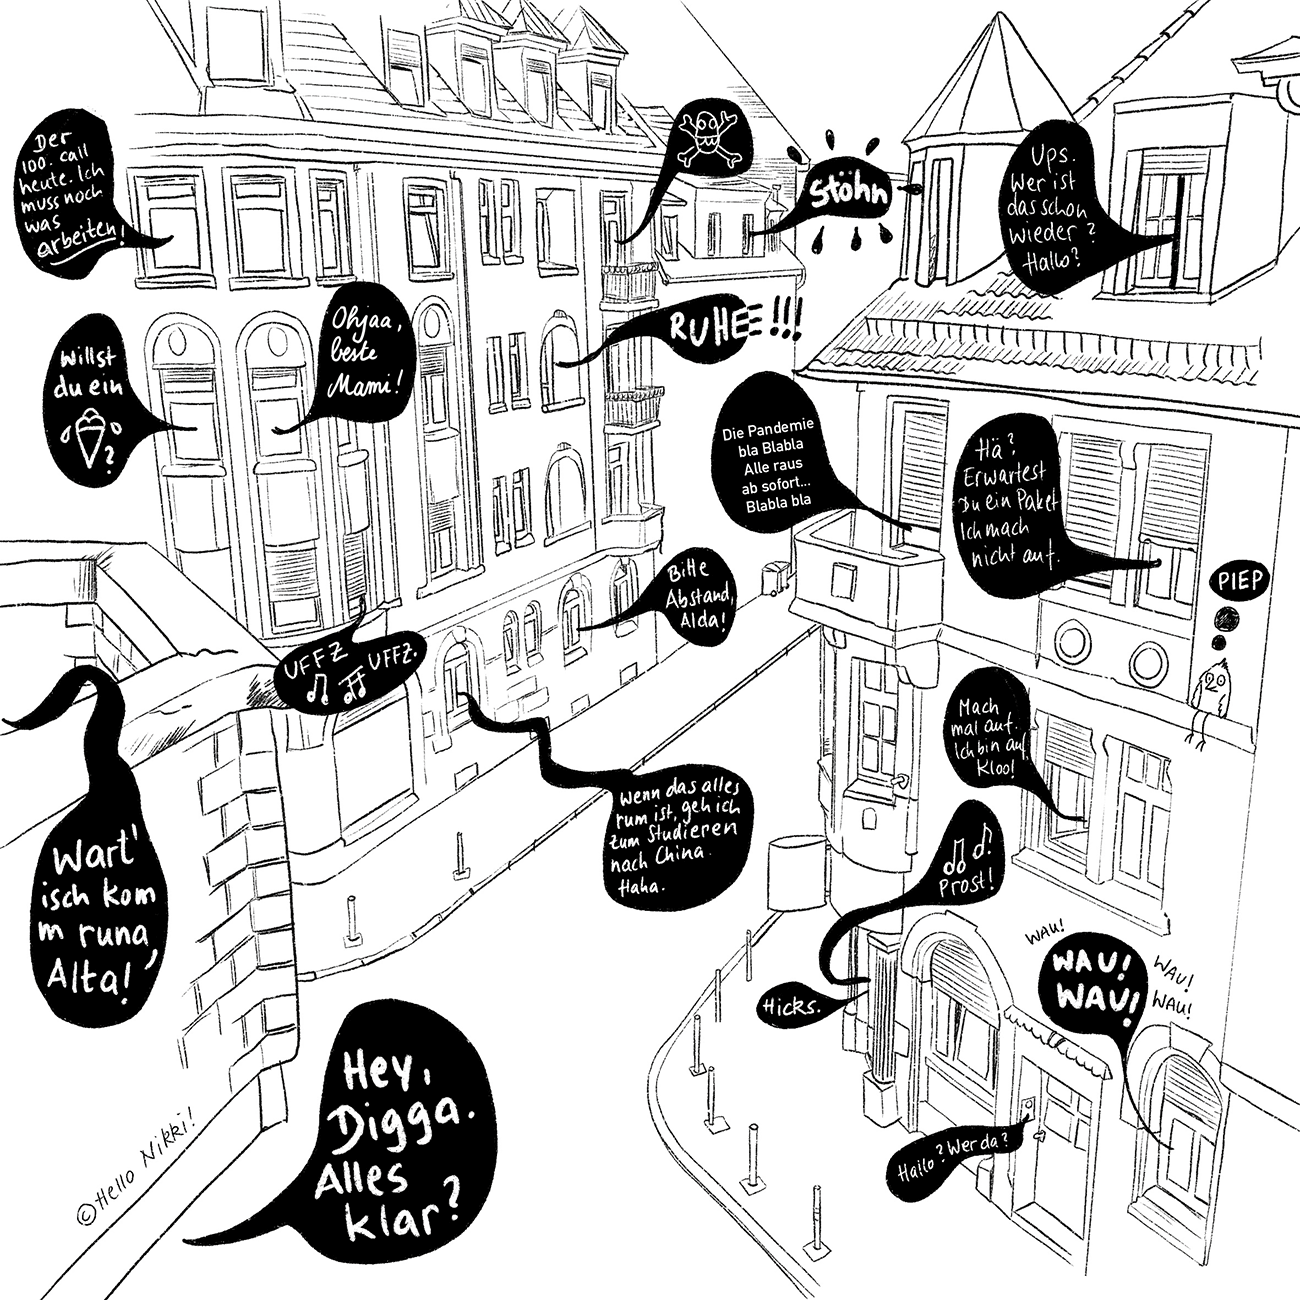 Der
100. call
heute. Ich
muss noch
was
arbeiten!
Stöhn
Ups.
Wer ist
das schon
wieder?
Hallo?
RUHEEE!!!
Ohjaa,
beste
Mami!
Willst
du ein
?
Die Pandemie
bla Blabla
Alle raus
ab sofort...
Blabla bla
Hä?
Erwartest
Du ein Paket
Ich mach
nicht auf.
PIEP
Bitte
Abstand,
Alda!
UFFZ
UFFZ.
Mach
mal auf.
Ich bin auf
Kloo!
Wenn das alles
rum ist, geh ich
zum Studieren
nach China.
Haha.
Wart'
isch kom
m runa,
Alta!
Prost!
Hicks.
WAU!
WAU!
WAU!
WAU!
WAU!
Hallo? Wer da?
Hey,
Digga.
Alles
klar?
©Hello Nikki!